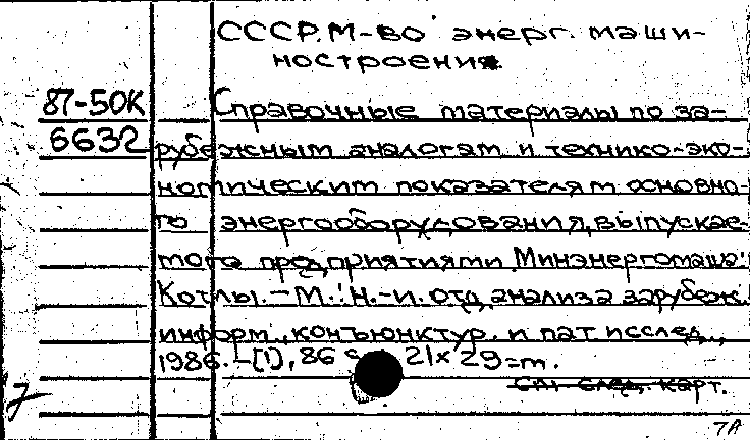 СССР. М-во энерг. маши-
ностроения.
87-50К Справочные материалы по за-
6632 рубежным аналогам и технико-эко-
номическим показателям основно-
го энергооборудования, выпускае-
мого предприятиями Минэнергомаша:
Котлы. - М.: Н.-и. отд. анализа зарубеж.
информ., конъюнктур. и пат. исслед.,
1986. - [1], 86 с. 21×29 см.
См. след. карт.
7А